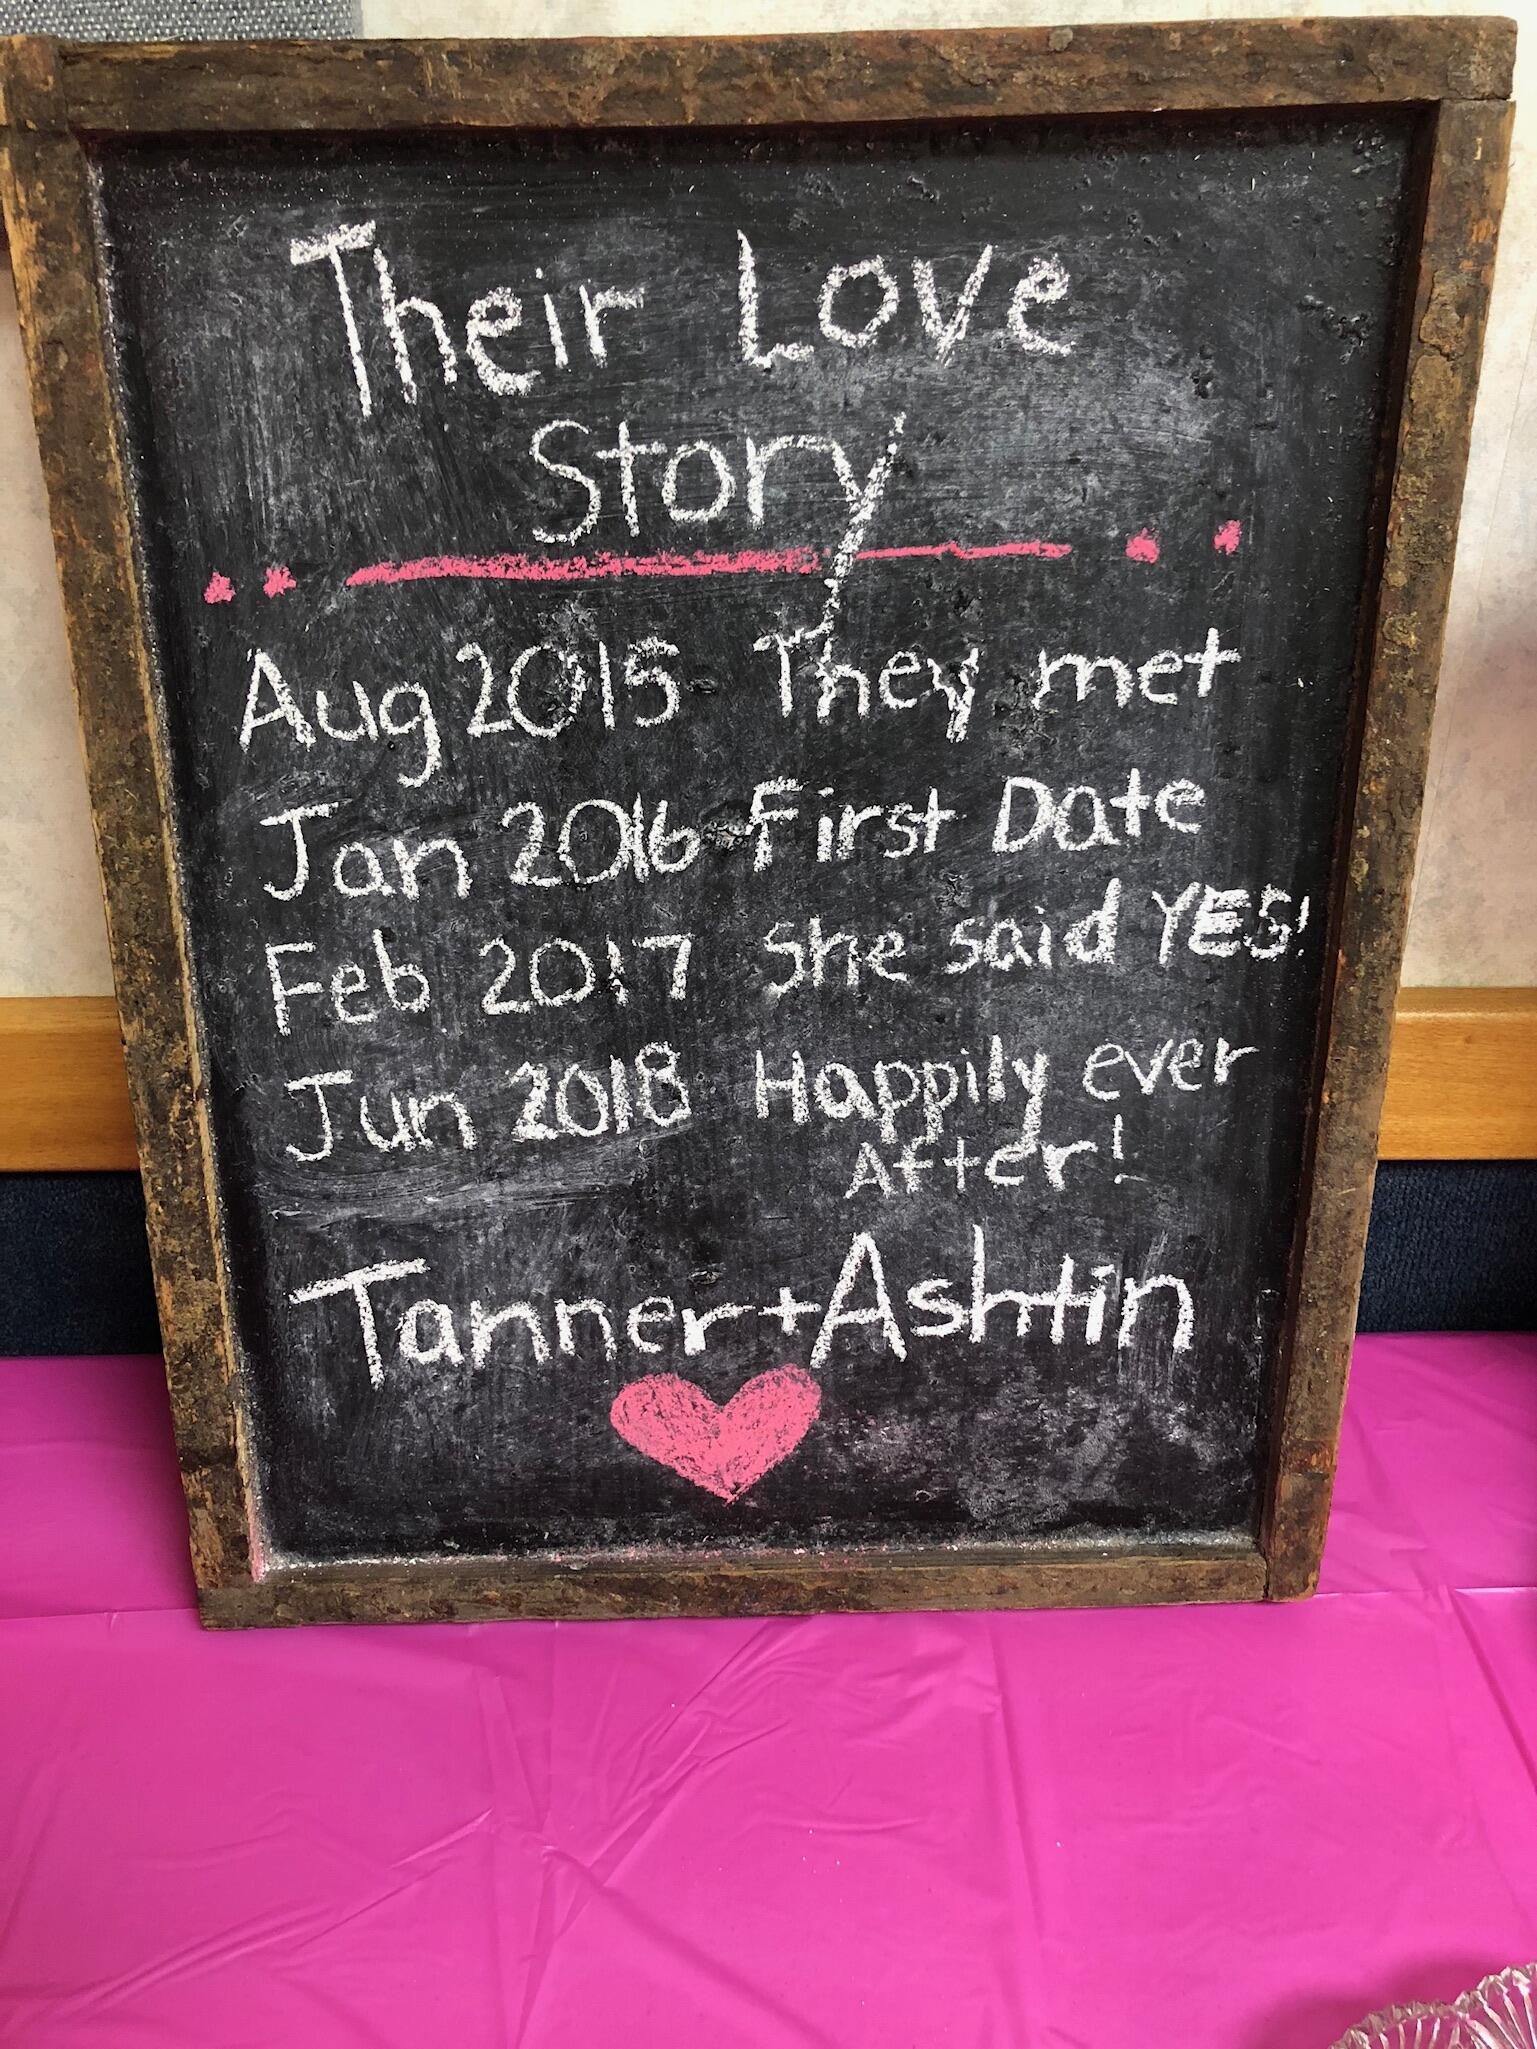 Their Love
Story
Aug 2015 They met
Jan 2016 First Date
Feb 2017 She said YES!
Jun 2018 Happily ever
After!
Tanner + Ashtin